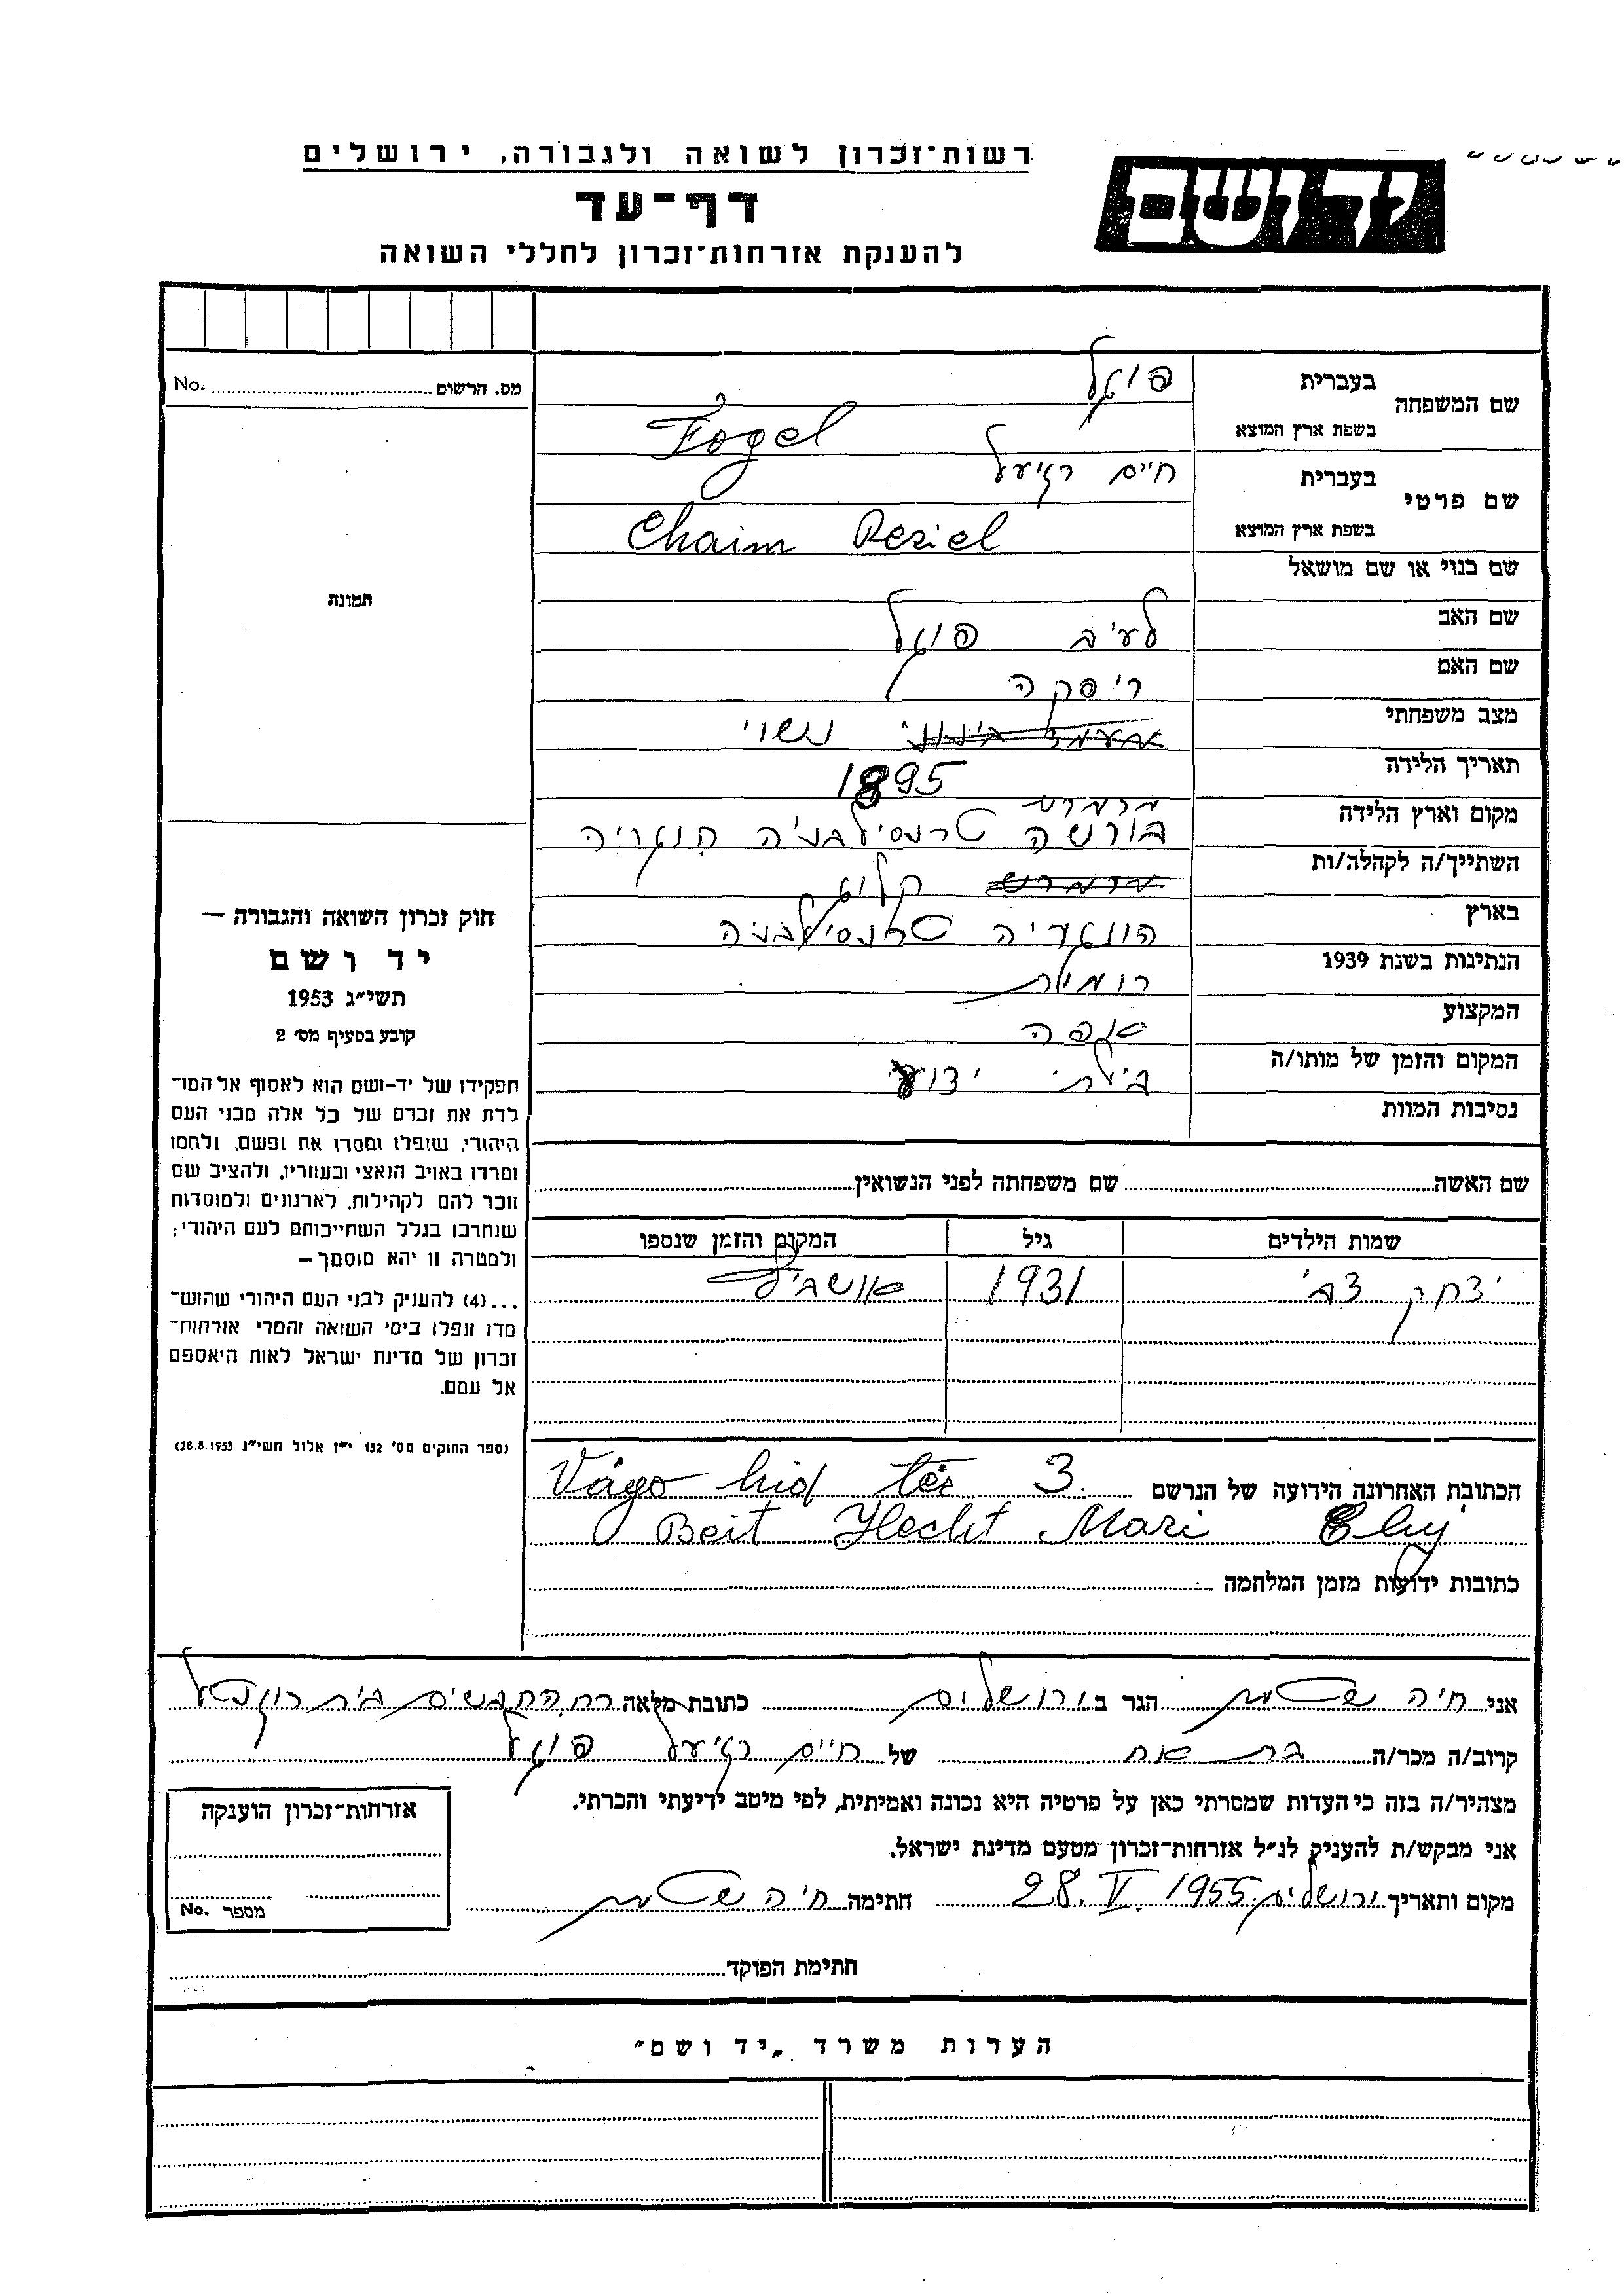 רשות־זכרון לשואה ולגבורה, ירושלים
יד ושם
דף־עד
להענקת אזרחות־זכרון לחללי השואה
No. מס. הרשום
תמונה
שם המשפחה
בעברית פוגל
בשפת ארץ המוצא Fogel
שם פרטי
בעברית חיים רזיעל
בשפת ארץ המוצא Chaim Reziel
שם כנוי או שם מושאל
שם האב לייב פוגל
שם האם ריסקה
מצב משפחתי נשוי
תאריך הלידה 1895
מרמרוש
מקום וארץ הלידה בורשה טרנסילבניה הונגריה
השתייך/ה לקהלה/ות קלוג
בארץ הונגריה טרנסילבניה
הנתינות בשנת 1939
המקצוע אפה
המקום והזמן של מותו/ה בילתי ידוע
נסיבות המוות
שם האשה שם משפחתה לפני הנשואין
שמות הילדים גיל המקום והזמן שנספו
יצחק צבי 1931 אושביץ
הכתובת האחרונה הידועה של הנרשם Vágo hid tér 3.
Beit Hecht Mari Cluj
כתובות ידועות מזמן המלחמה
חוק זכרון השואה והגבורה —
יד ושם
תשי״ג 1953
קובע בסעיף מס׳ 2
תפקידו של יד-ושם הוא לאסוף אל המו־
לדת את זכרם של כל אלה מבני העם
היהודי, שנפלו ומסרו את נפשם, נלחמו
ומרדו באויב הנאצי ובעוזריו, ולהציב שם
וזכר להם לקהילות, לארגונים ולמוסדות
שנחרבו בגלל השתייכותם לעם היהודי;
ולמטרה זו יהא מוסמך —
...(4) להעניק לבני העם היהודי שהוש־
מדו ונפלו בימי השואה והמרי אזרחות־
זכרון של מדינת ישראל לאות היאספם
אל עמם.
(ספר החוקים מס׳ 132 י״ז אלול תשי״ג 28.8.1953)
אני חיה הגר ב ירושלים כתובת מלאה
קרוב/ה מכר/ה בת אח של חיים רזיעל פוגל
מצהיר/ה בזה כי העדות שמסרתי כאן על פרטיה היא נכונה ואמיתית, לפי מיטב ידיעתי והכרתי.
אני מבקש/ת להעניק לנ״ל אזרחות־זכרון מטעם מדינת ישראל.
מקום ותאריך ירושלים 28. V. 1955 חתימה חיה
אזרחות־זכרון הוענקה
No. מספר
חתימת הפוקד
הערות משרד „יד ושם״